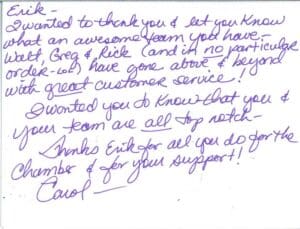 Erik -
I wanted to thank you & let you know
what an awesome team you have -
Walt, Greg & Rick (and in no particular
order - lol) have gone above & beyond
with great customer service!
I wanted you to know that you &
your team are all top notch -
Thanks Erik for all you do for the
Chamber & for your support!
Carol -